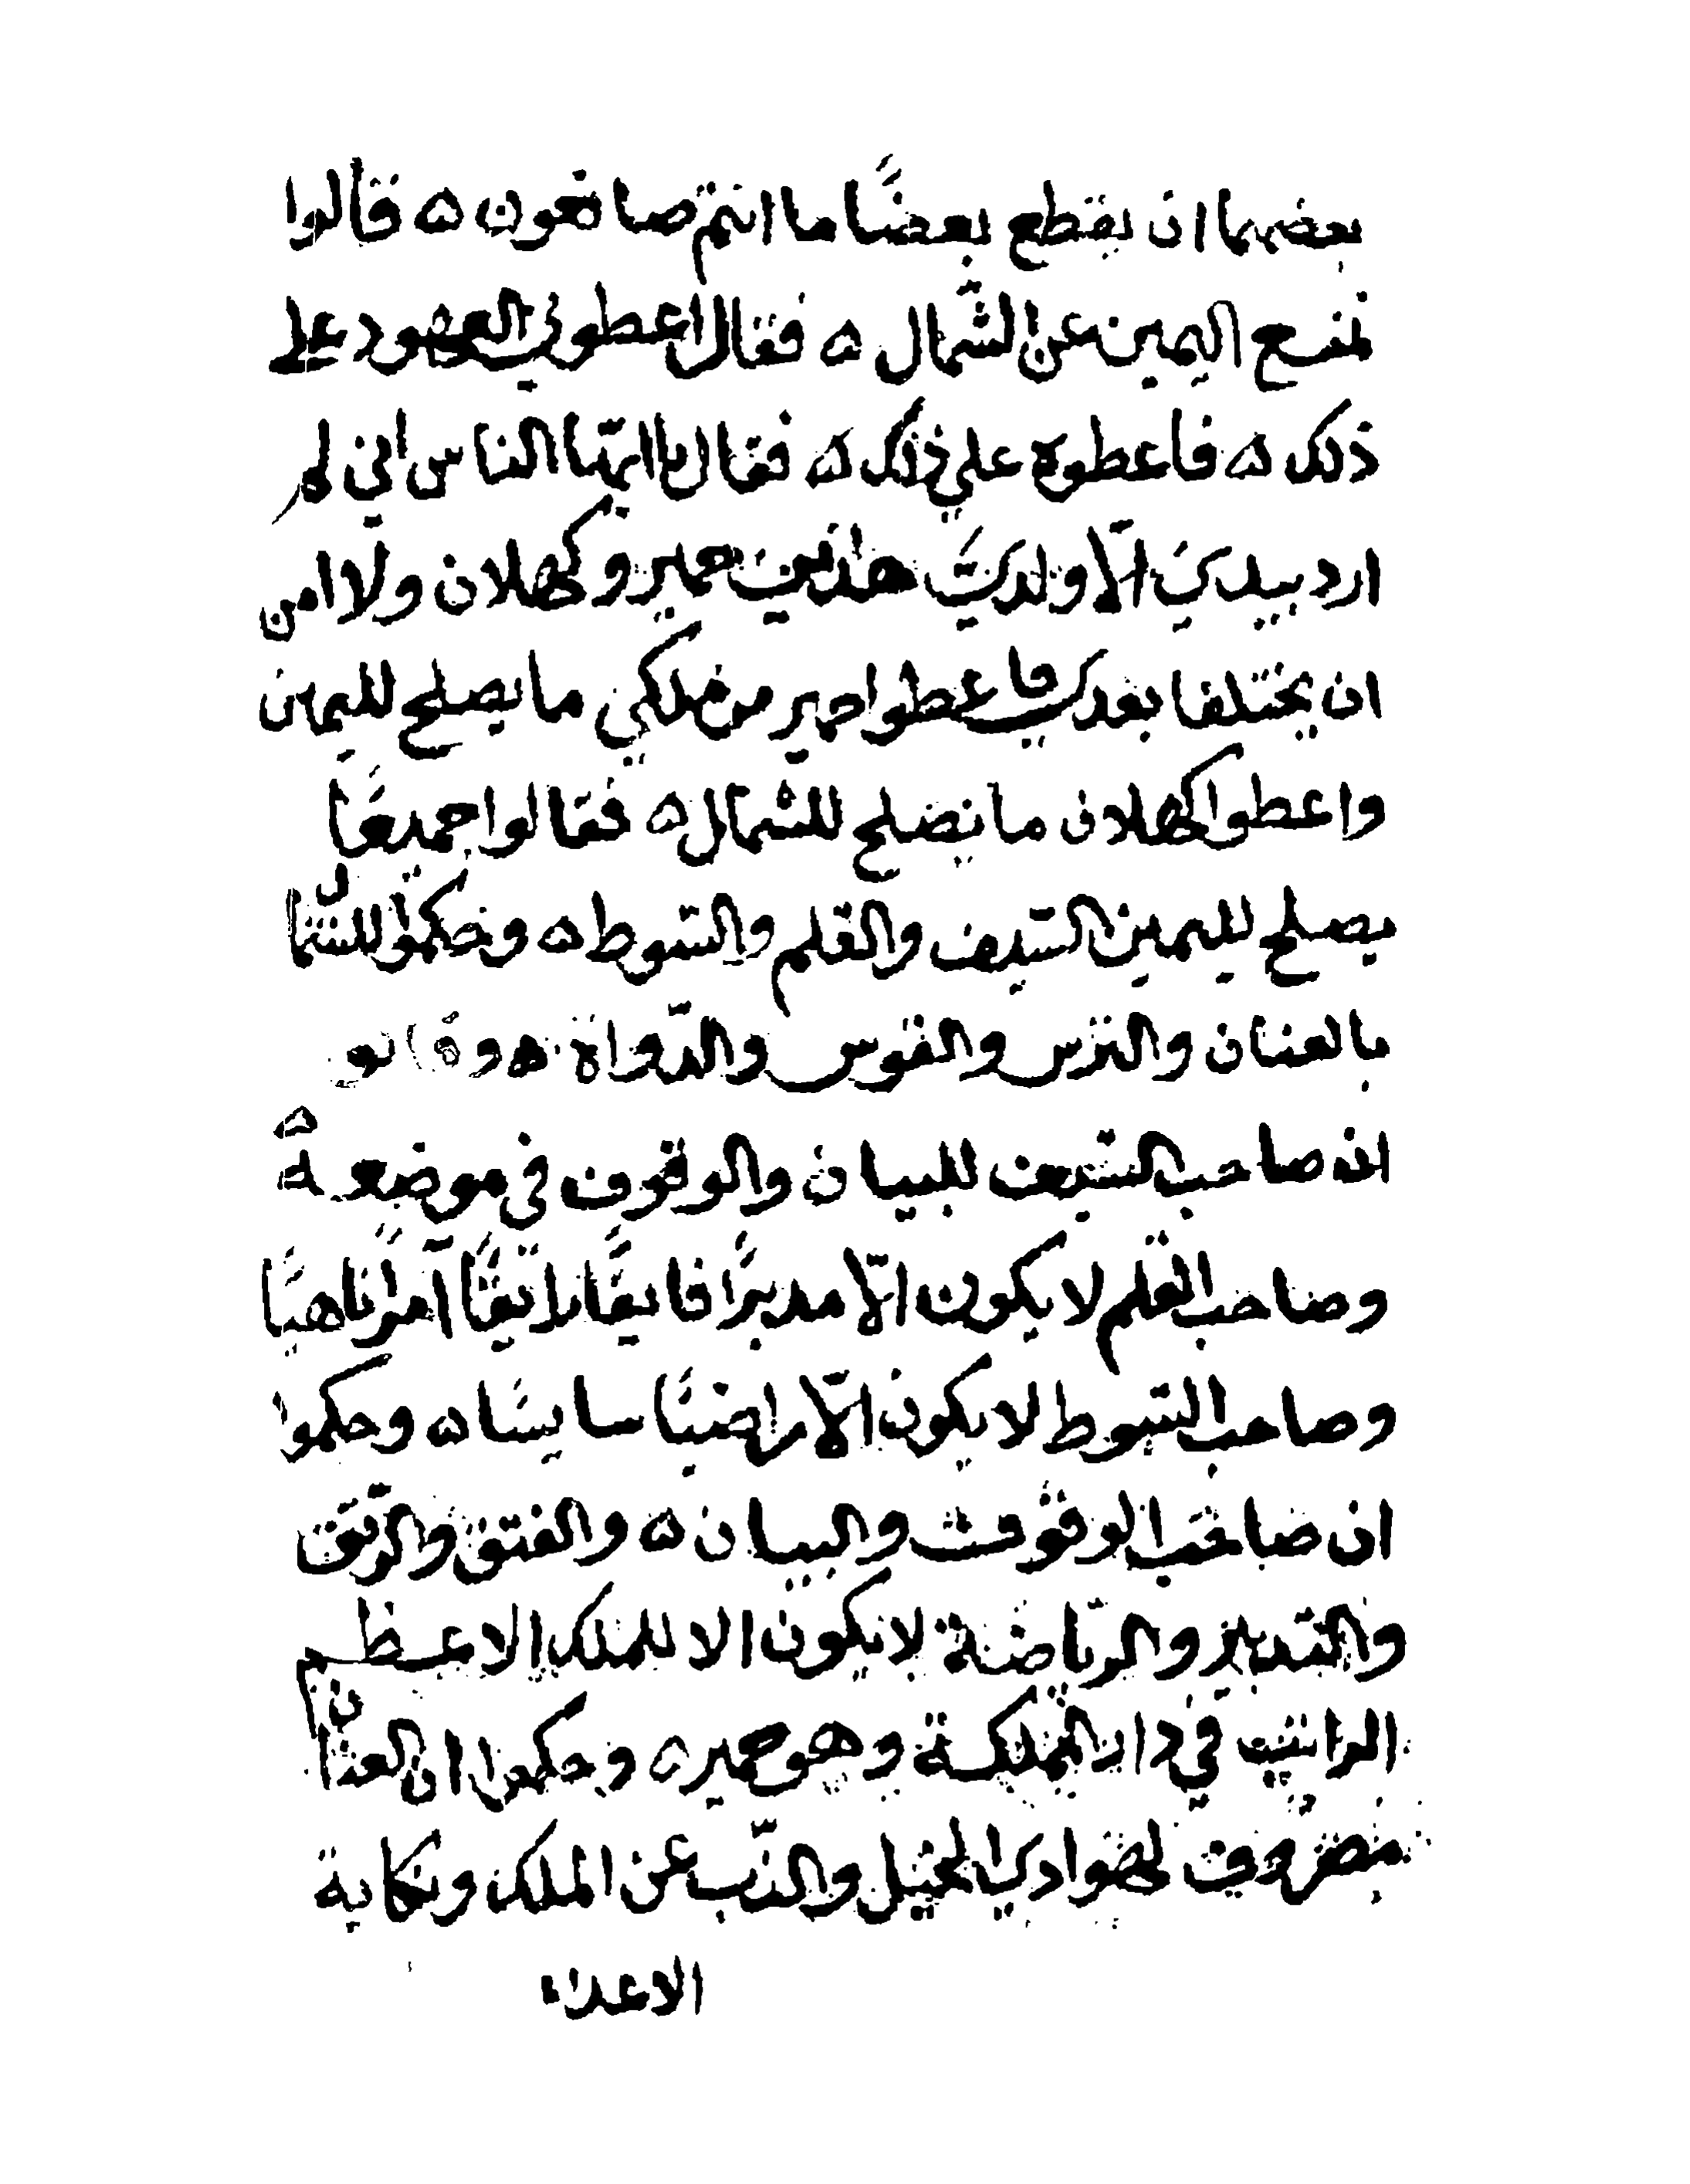 بعضهما ان يقطع بعضًا ما انتم صانعون ه قالوا
نمنع اليمين عن الشمال ه فقال اعطوني العهود على
ذلك ه فاعطوه على ذلك ه فقال يا ايها الناس اني لم
ارد بيدي الّا ولدي هذين حمير وكهلان ولا امن
ان يختلفا بعدي فاعطوا حمير من ملكي ما يصلح لليمين
واعطوا كهلان ما يصلح للشمال ه فقالوا جميعًا
يصلح لليمين السّيف والقلم والسّوط ه وحكموا للشّمال
بالعنان والترس والقوس والدّواة ه وقالو
ان صاحب السّيف للبيان والوقوف في موضعه ه
وصاحب القلم لا يكون الّا مدبرًا فايقًا راتقًا آمرًا ناهيًا
وصاحب السّوط لا يكون الّا راضيًا سايسًا ه وحكموا
ان صاحب الوقوف والبيان ه والفتق والرّتق
والتدبير والرّياضة لا يكون الا للملك الاعظم
الراتب في دار المملكة وهو حمير ه وحكموا ان العنان
مصروف لهوادي الخيل والذّب عن الملك ونكاية
الاعداء